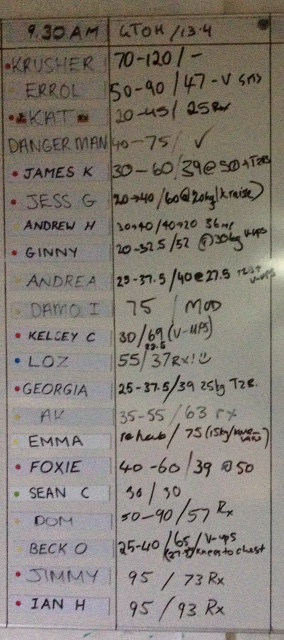 9.30 AM GTOH / 13.4
KRUSHER 70-120/-
ERROL 50-90/47-V sms
KAT 20-45/25Rx
DANGERMAN 40-75/ ✓
JAMES K 30-60/39@50+T2B
JESS G 20→40/60@20kg/k raise)
ANDREW H 30→40/40→20 36
GINNY 20-32.5/52 @30kg V-ups
ANDREA 25-37.5/40@27.5 V-ups
DAMO I 75 / MOD
KELSEY C 30/69 (V-UPS) 22.5
LOZ 55/37Rx!
GEORGIA 25-37.5/39 25kg T2B.
AK 35-55/63 rx
EMMA rehab/75 (15kg/knee-raises)
FOXIE 40-60/39 @50
SEAN C 30/30
DOM 50-90/57 Rx
BECK O 25-40/65/V-ups (27.5)/knees to chest
JIMMY 95 / 73 Rx
IAN H 95 / 93 Rx